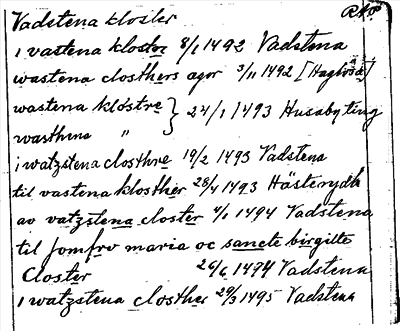 Vadstena kloster
i vastena kloster 8/1 1492 Vadstena
wastena closthers ægor 3/11 1492
wastena klostre } 24/1 1493 Husaby ting
wasthena "
i watzstena closthre 19/2 1493 Vadstena
til vastena klosther 28/4 1493 Hästerydh
av vatzstena closter 4/1 1494 Vadstena
til jomfrv maria oc sancte birgitte
Closter 26/6 1474 Vadstena
i watzstena closther 29/3 1495 Vadstena